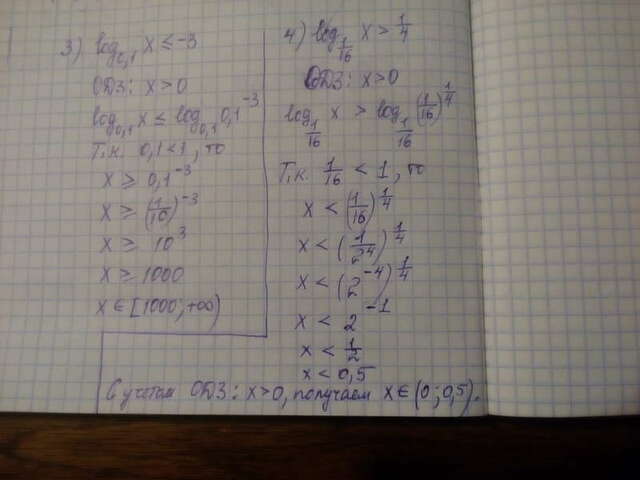 3) log₀,₁ x ≤ -3
ОДЗ: x > 0
log₀,₁ x ≤ log₀,₁ 0,1⁻³
Т.к. 0,1 < 1, то
x ≥ 0,1⁻³
x ≥ (1/10)⁻³
x ≥ 10³
x ≥ 1000
x ∈ [1000; +∞)
4) log_{1/16} x > 1/4
ОДЗ: x > 0
log_{1/16} x > log_{1/16} (1/16)^{1/4}
Т.к. 1/16 < 1, то
x < (1/16)^{1/4}
x < (1/2⁴)^{1/4}
x < (2⁻⁴)^{1/4}
x < 2⁻¹
x < 1/2
x < 0,5
С учетом ОДЗ: x > 0, получаем x ∈ (0; 0,5).